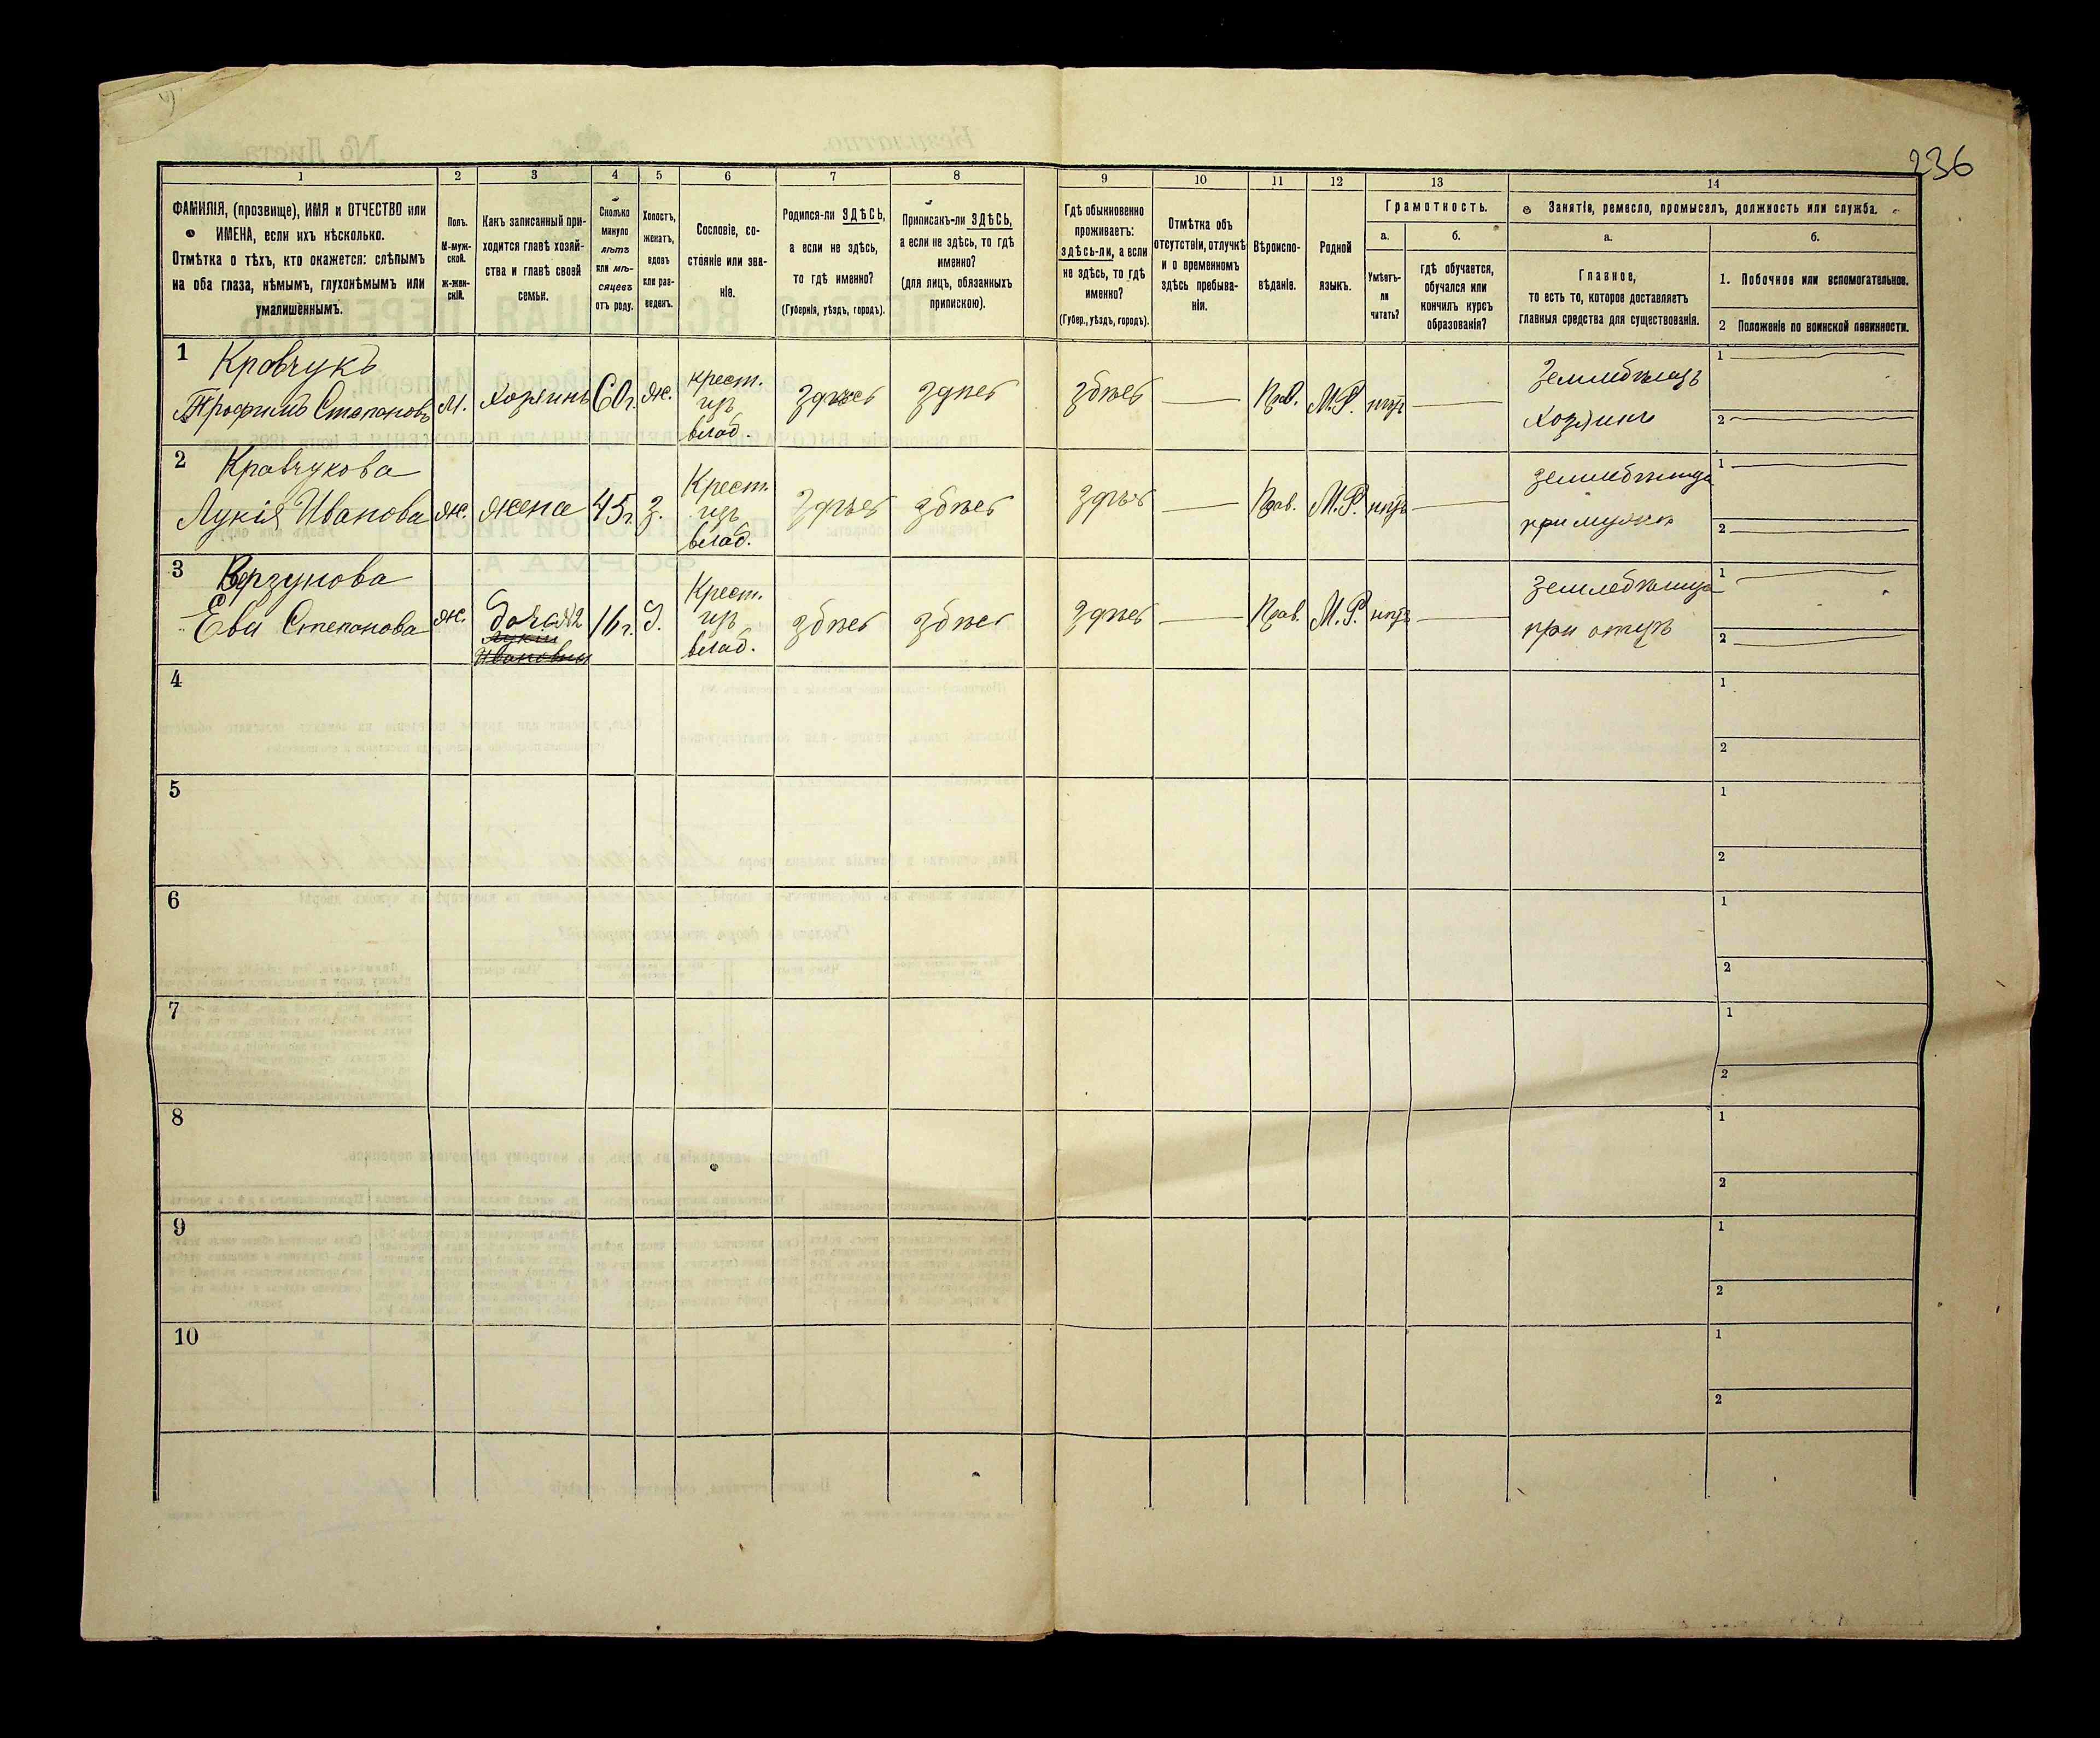 236
1 2 3 4 5 6 7 8 9 10 11 12 13 14
ФАМИЛІЯ, (прозвище), ИМЯ и ОТЧЕСТВО или
ИМЕНА, если ихъ нѣсколько.
Отмѣтка о тѣхъ, кто окажется: слѣпымъ
на оба глаза, нѣмымъ, глухонѣмымъ или
умалишеннымъ.
Полъ.
М-муж-
ской.
ж-жен-
скій.
Какъ записанный при-
ходится главѣ хозяй-
ства и главѣ своей
семьи.
Сколько
минуло
лѣтъ
или мѣ-
сяцевъ
отъ роду.
Холостъ,
женатъ,
вдовъ
или раз-
веденъ.
Сословіе, со-
стояніе или зва-
ніе.
Родился-ли ЗДѢСЬ,
а если не здѣсь,
то гдѣ именно?
(Губернія, уѣздъ, городъ).
Приписанъ-ли ЗДѢСЬ,
а если не здѣсь, то гдѣ
именно?
(для лицъ, обязанныхъ
припискою).
Гдѣ обыкновенно
проживаетъ:
здѣсь-ли, а если
не здѣсь, то гдѣ
именно?
(Губер., уѣздъ, городъ).
Отмѣтка объ
отсутствіи, отлучкѣ
и о временномъ
здѣсь пребыва-
ніи.
Вѣроиспо-
вѣданіе.
Родной
языкъ.
Грамотность.
а.
Умѣетъ-
ли
читать?
б.
гдѣ обучается,
обучался или
кончилъ курсъ
образованія?
Занятіе, ремесло, промыселъ, должность или служба.
а.
Главное,
то есть то, которое доставляетъ
главныя средства для существованія.
б.
1. Побочное или вспомогательное.
2 Положеніе по воинской повинности.
1 Кравчукъ
Трофимъ Степановъ
м.
Хозяинъ
60 г.
ж.
крест.
изъ
влад.
здѣсь
здѣсь
здѣсь
Прав.
М.Р.
нѣтъ
Земледѣлецъ
Хозяинъ
1
2
2 Кравчукова
Лукія Иванова
ж.
жена
45 г.
з.
Крест.
изъ
влад.
здѣсь
здѣсь
здѣсь
Прав.
М.Р.
нѣтъ
земледѣлица
при мужѣ
1
2
3
Ева Степанова
ж.
дочь
Лукіи
Ивановны
16 г.
д.
Крест.
изъ
влад.
здѣсь
здѣсь
здѣсь
Прав.
М.Р.
нѣтъ
земледѣлица
при отцѣ
1
2
4
1
2
5
1
2
6
1
2
7
1
2
8
1
2
9
1
2
10
1
2